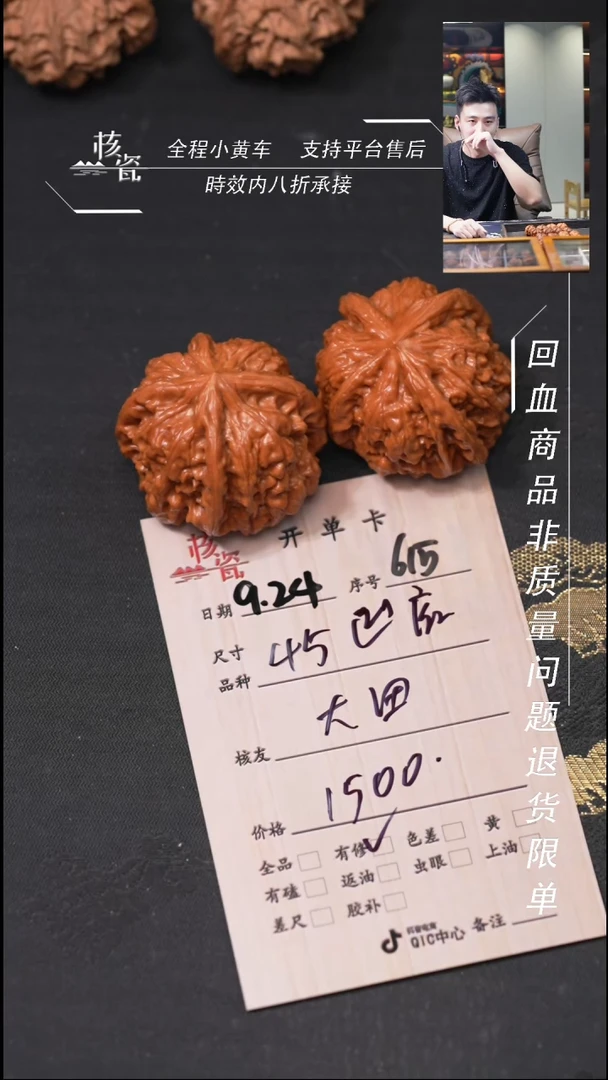 核瓷
全程小黄车 支持平台售后
時效内八折承接
回血商品非质量问题退货限单
核瓷 开单卡
日期 9.24 序号 615
尺寸
品种 45 凹底
核友 大田
价格 1500.
全品 有修 ✓ 色差 黄
有磕 返油 虫眼 上油
差尺 胶补
抖音电商
QIC中心 备注